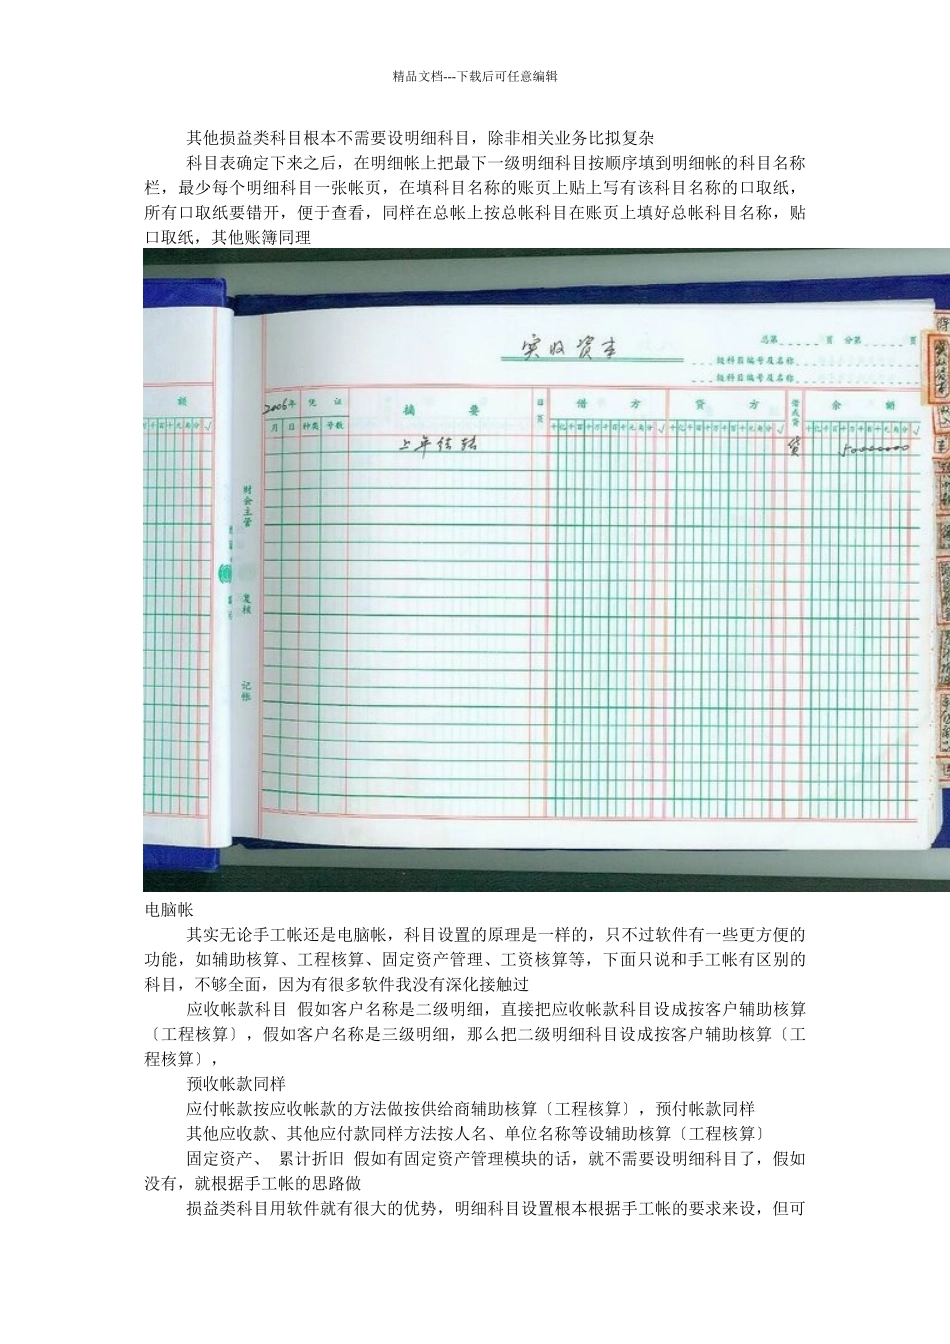 精品文档---下载后可任意编辑
其他损益类科目根本不需要设明细科目，除非相关业务比拟复杂
科目表确定下来之后，在明细帐上把最下一级明细科目按顺序填到明细帐的科目名称
栏，最少每个明细科目一张帐页，在填科目名称的账页上贴上写有该科目名称的口取纸，
所有口取纸要错开，便于查看，同样在总帐上按总帐科目在账页上填好总帐科目名称，贴
口取纸，其他账簿同理
实收资本
总第 页 分第 页
级科目编号及名称
级科目编号及名称
额
2006年 凭 证 摘 要 日页 借 方 贷 方 借或贷 余 额
月 日 种类 号数 千亿千百十万千百十元角分√ 十亿千百十万千百十元角分√ 十亿千百十万千百十元角分√
上年结转 贷 50000000
财会主管
复核
记帐
电脑帐
其实无论手工帐还是电脑帐，科目设置的原理是一样的，只不过软件有一些更方便的
功能，如辅助核算、工程核算、固定资产管理、工资核算等，下面只说和手工帐有区别的
科目，不够全面，因为有很多软件我没有深化接触过
应收帐款科目 假如客户名称是二级明细，直接把应收帐款科目设成按客户辅助核算
〔工程核算〕，假如客户名称是三级明细，那么把二级明细科目设成按客户辅助核算〔工
程核算〕，
预收帐款同样
应付帐款按应收帐款的方法做按供给商辅助核算〔工程核算〕，预付帐款同样
其他应收款、其他应付款同样方法按人名、单位名称等设辅助核算〔工程核算〕
固定资产、 累计折旧 假如有固定资产管理模块的话，就不需要设明细科目了，假如
没有，就根据手工帐的思路做
损益类科目用软件就有很大的优势，明细科目设置根本根据手工帐的要求来设，但可